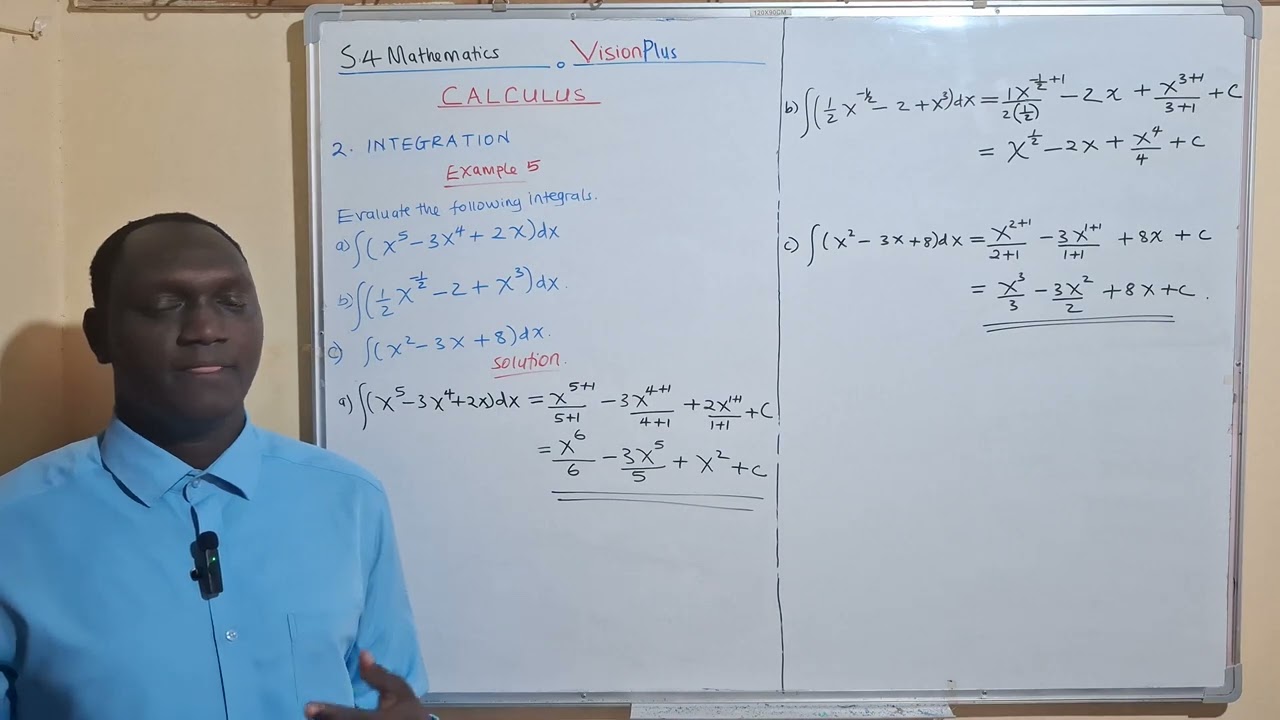 120X90CM
S.4 Mathematics VisionPlus
CALCULUS
2. INTEGRATION
Example 5
Evaluate the following integrals.
a) ∫(x⁵ - 3x⁴ + 2x)dx
b) ∫(½ x^(-½) - 2 + x³)dx.
c) ∫(x² - 3x + 8)dx.
solution.
a) ∫(x⁵ - 3x⁴ + 2x)dx = x^(5+1)/(5+1) - 3x^(4+1)/(4+1) + 2x^(1+1)/(1+1) + C
= x⁶/6 - 3x⁵/5 + x² + c
b) ∫(½ x^(-½) - 2 + x³)dx = 1x^(-½+1)/2(½) - 2x + x^(3+1)/(3+1) + C
= x^(½) - 2x + x⁴/4 + c
c) ∫(x² - 3x + 8)dx = x^(2+1)/(2+1) - 3x^(1+1)/(1+1) + 8x + c
= x³/3 - 3x²/2 + 8x + c.